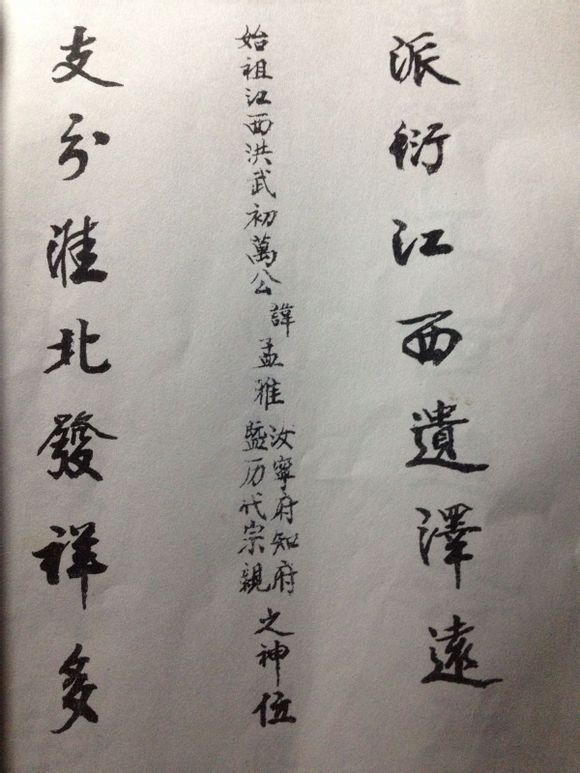 派衍江西遺澤遠
始祖江西洪武初萬公諱孟雅汝寧府知府暨历代宗親之神位
支分淮北發祥多